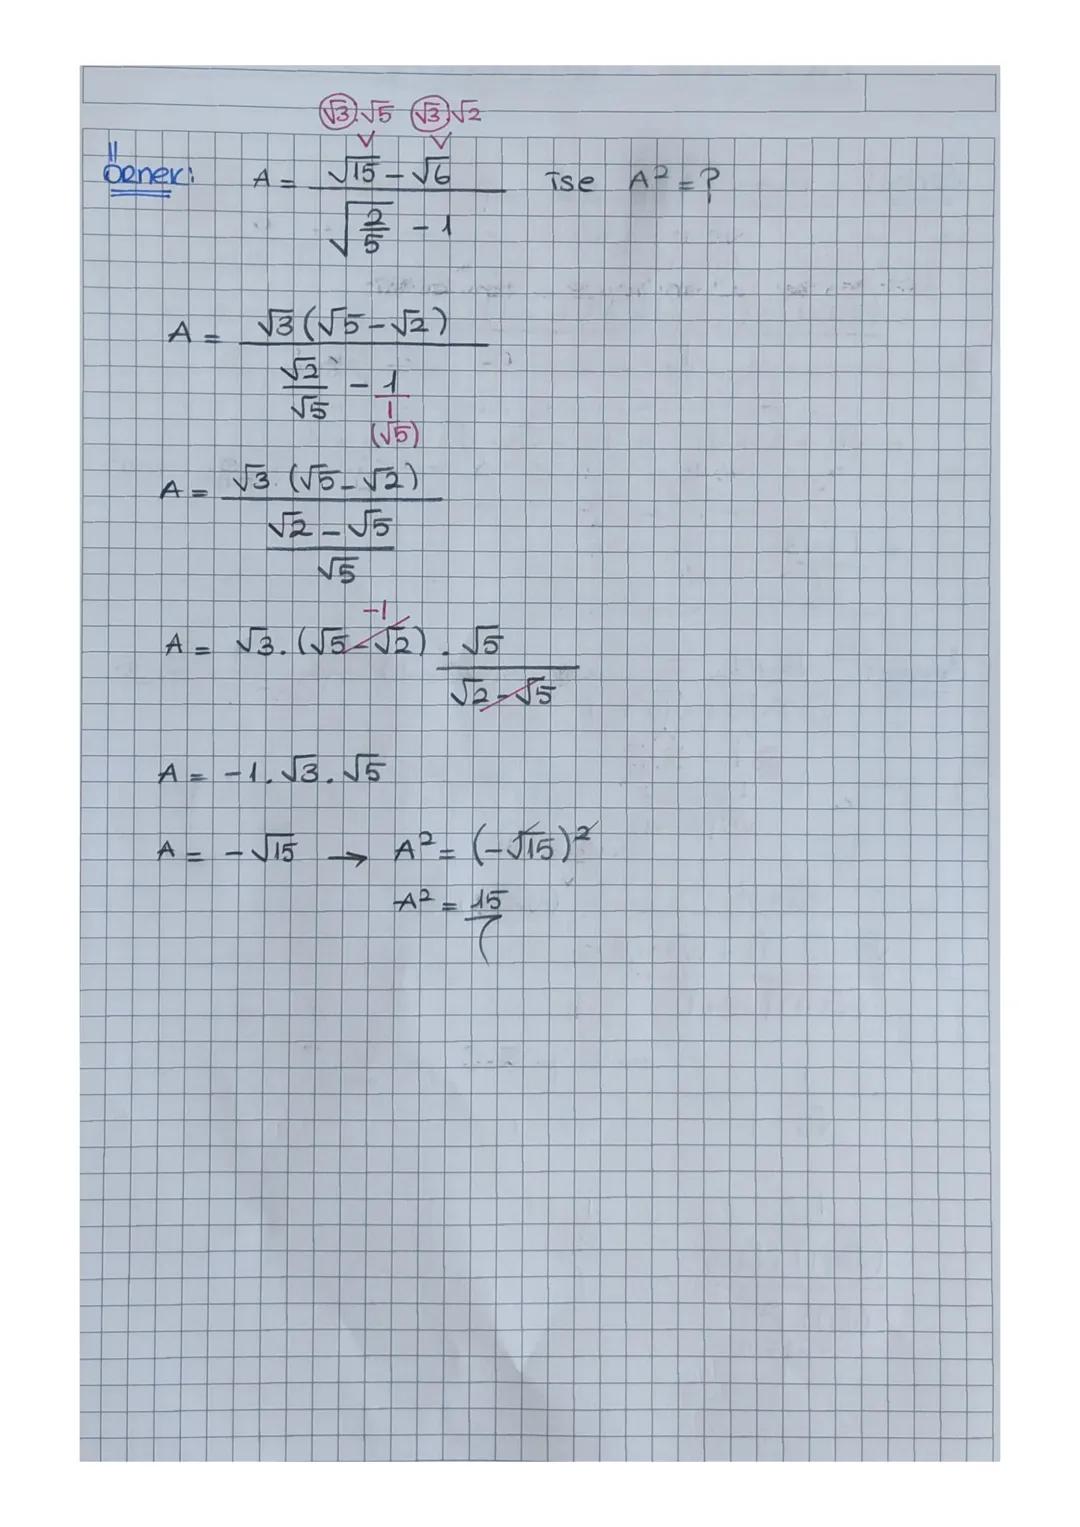 √3 √5 √3 √2
Örnek: A = (√15 - √6) / (√(2/5) - 1) ise A² = ?
A = √3 (√5 - √2) / (√2/√5 - 1/1)
(√5)
A = √3 . (√5 - √2) / ((√2 - √5)/√5)
-1
A = √3 . (√5 - √2) . √5 / (√2 - √5)
A = -1 . √3 . √5
A = -√15 → A² = (-√15)²
A² = 15